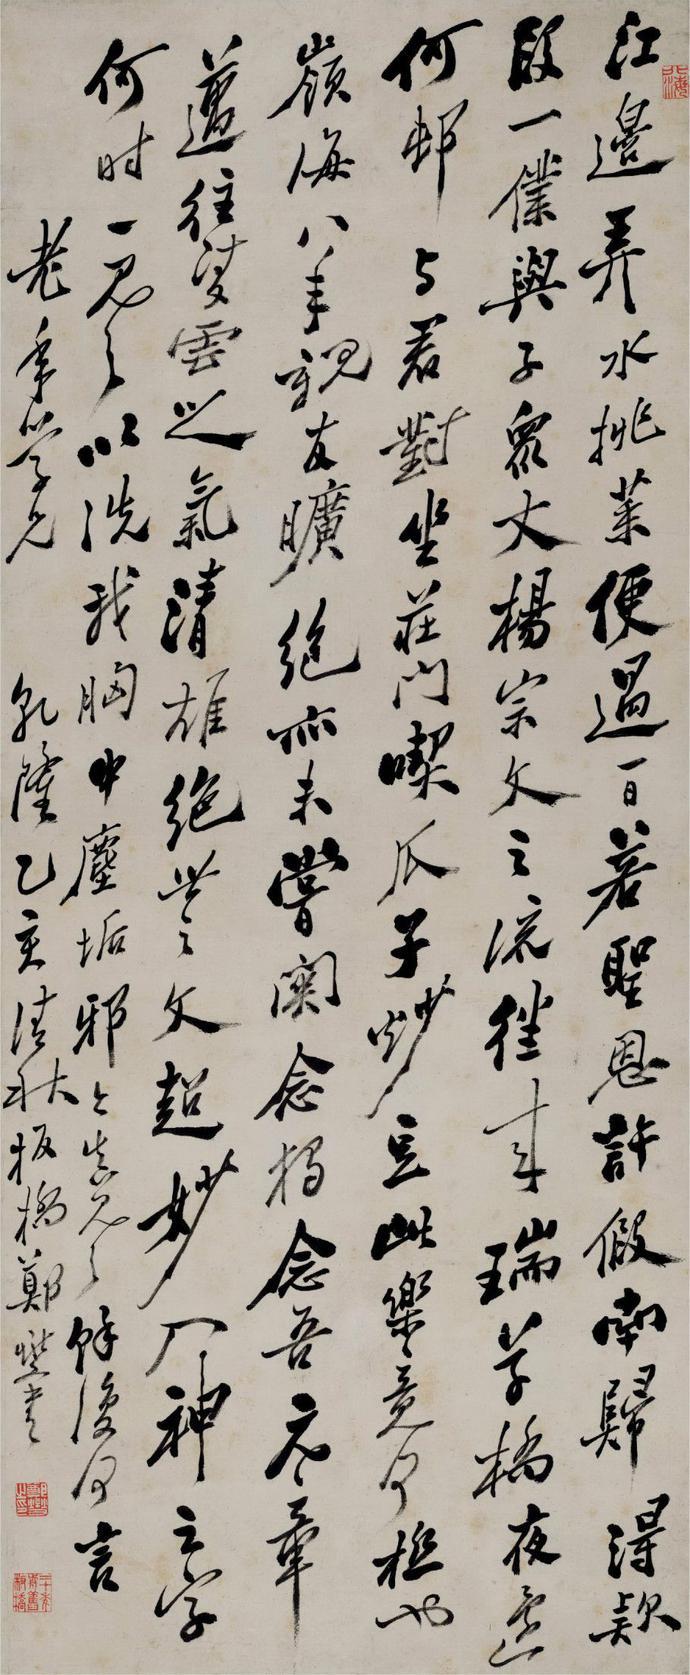 江邊弄水挑菜便過一日若聖恩許假南歸得款
段一僕與子衆丈楊宗文之流往來瑞草橋夜還
何邨与君對坐莊門喫瓜子炒豆此樂竟何極也
嶺海八年親友曠絶亦未嘗関念獨念吾元章
邁往凌雲之氣清雄絶世之文超妙入神之字
何时一見之以洗我胸中塵垢邪今真見之餘復何言
老年学兄 乾隆乙亥清秋板橋鄭燮書